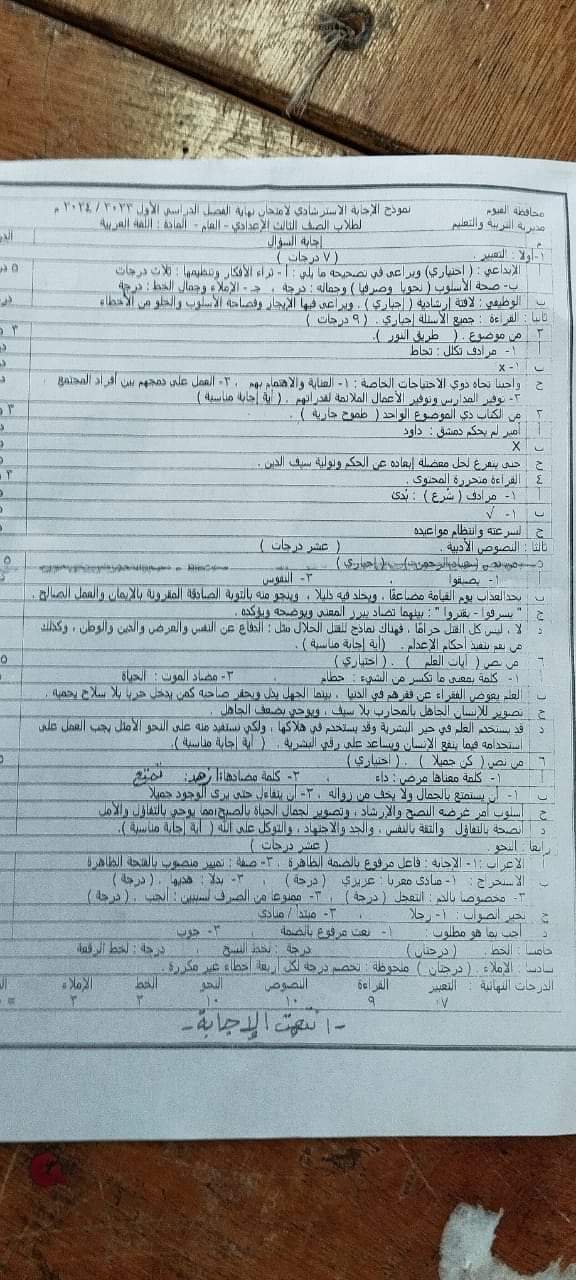 محافظة الفيوم
مديرية التربية والتعليم
نموذج الإجابة الاسترشادي لامتحان نهاية الفصل الدراسي الأول ٢٠٢٣ / ٢٠٢٤ م
لطلاب الصف الثالث الإعدادي - العام - المادة : اللغة العربية
م إجابة السؤال
١- أولا : التعبير . ( ٧ درجات )
أ الإبداعي : ( اختياري) ويراعى في تصحيحه ما يلي : أ - ثراء الأفكار وتنظيمها : ثلاث درجات
ب- صحة الأسلوب ( نحويا وصرفيا ) وجماله : درجة ، جـ - الإملاء وجمال الخط : درجة
ب الوظيفي : لافتة إرشادية ( إجباري) . ويراعى فيها الإيجاز وفصاحة الأسلوب والخلو من الأخطاء
ثانيا : القراءة : جميع الأسئلة إجباري . ( ٩ درجات )
٢ من موضوع . ( طريق النور ).
أ ١- مرادف تكلل : تحاط
ب ١- x
ج واجبنا تجاه ذوي الاحتياجات الخاصة : ١- العناية والاهتمام بهم ، ٢- العمل على دمجهم بين أفراد المجتمع
٣- توفير المدارس وتوفير الأعمال الملائمة لقدراتهم . ( أية إجابة مناسبة )
٣ من الكتاب ذي الموضوع الواحد ( طموح جارية ) .
أ أمير لم يحكم دمشق : داود
ب X
ج حتى يتفرغ لحل معضلة إبعاده عن الحكم وتولية سيف الدين .
٤ القراءة متحررة المحتوى .
أ ١- مرادف ( شُرع ) : بُدئ
ب ١- √
ج لسرعته وانتظام مواعيده
ثالثا : النصوص الأدبية . ( عشر درجات )
٥ من نص ( عباد الرحمن ) . ( إجباري )
أ ١- يضيقوا ، ٢- النفوس
ب يجد العذاب يوم القيامة مضاعفًا ، ويخلد فيه ذليلا ، وينجو منه بالتوبة الصادقة المقرونة بالإيمان والعمل الصالح .
ج " يسرفوا - يقتروا " : بينهما تضاد يبرز المعنى ويوضحه ويؤكده .
د لا ، ليس كل القتل حرامًا ، فهناك نماذج للقتل الحلال مثل : الدفاع عن النفس والعرض والدين والوطن ، وكذلك
من يهم بتنفيذ أحكام الإعدام . (أية إجابة مناسبة )
٦ من نص ( آيات العلم ) . ( اختياري )
أ ١- كلمة بمعنى ما تكسر من الشيء : حطام ، ٢- مضاد الموت : الحياة
ب العلم يعوض الفقراء عن فقرهم في الدنيا ، بينما الجهل يذل ويحقر صاحبه كمن يدخل حربا بلا سلاح يحميه .
ج تصوير للإنسان الجاهل بالمحارب بلا سيف ، ويوحي بضعف الجاهل .
د قد يستخدم العلم في خير البشرية وقد يستخدم في هلاكها ، ولكي نستفيد منه على النحو الأمثل يجب العمل على
استخدامه فيما ينفع الإنسان ويساعد على رقي البشرية . ( أية إجابة مناسبة ).
٦ من نص ( كن جميلا ) . ( اختياري )
أ ١- كلمة معناها مرض : داء ، ٢- كلمة مضادها زهد : تمتع
ب ١- أن يستمتع بالجمال ولا يخف من زواله ، ٢- أن يتفاءل حتى يرى الوجود جميلا
ج أسلوب أمر غرضه النصح والإرشاد ، وتصوير لجمال الحياة بالصبح مما يوحي بالتفاؤل والأمل
د أنصحه بالتفاؤل والثقة بالنفس ، والجد والاجتهاد ، والتوكل على الله ( أية إجابة مناسبة ).
رابعا : النحو ( عشر درجات )
أ الإعراب :١- الإجابة : فاعل مرفوع بالضمة الظاهرة . ٢- صفة : تمييز منصوب بالفتحة الظاهرة
ب الاستخراج : ١- منادى معربا : عزيزي ( درجة ) ، ٢- بدلا : هديها . ( درجة )
٣- مخصوصا بالذم : التعجل ( درجة ) ، ٤- ممنوعا من الصرف لسببين : أنجب . ( درجة )
ج تخير الصواب : ١- رجلا ، ٢- مبتدأ / منادى
د أجب بما هو مطلوب : ١- نعت مرفوع بالضمة ، ٢- جوب
خامسا : الخط . ( درجتان ) درجة : لخط النسخ ، درجة : لخط الرقعة
سادسا : الإملاء . ( درجتان ) ملحوظة : تخصم درجة لكل أربعة أخطاء غير مكررة .
الدرجات النهائية : التعبير القراءة النصوص النحو الخط الإملاء
٧ ٩ ١٠ ١٠ ٢ ٢ =
- انتهت الإجابة -